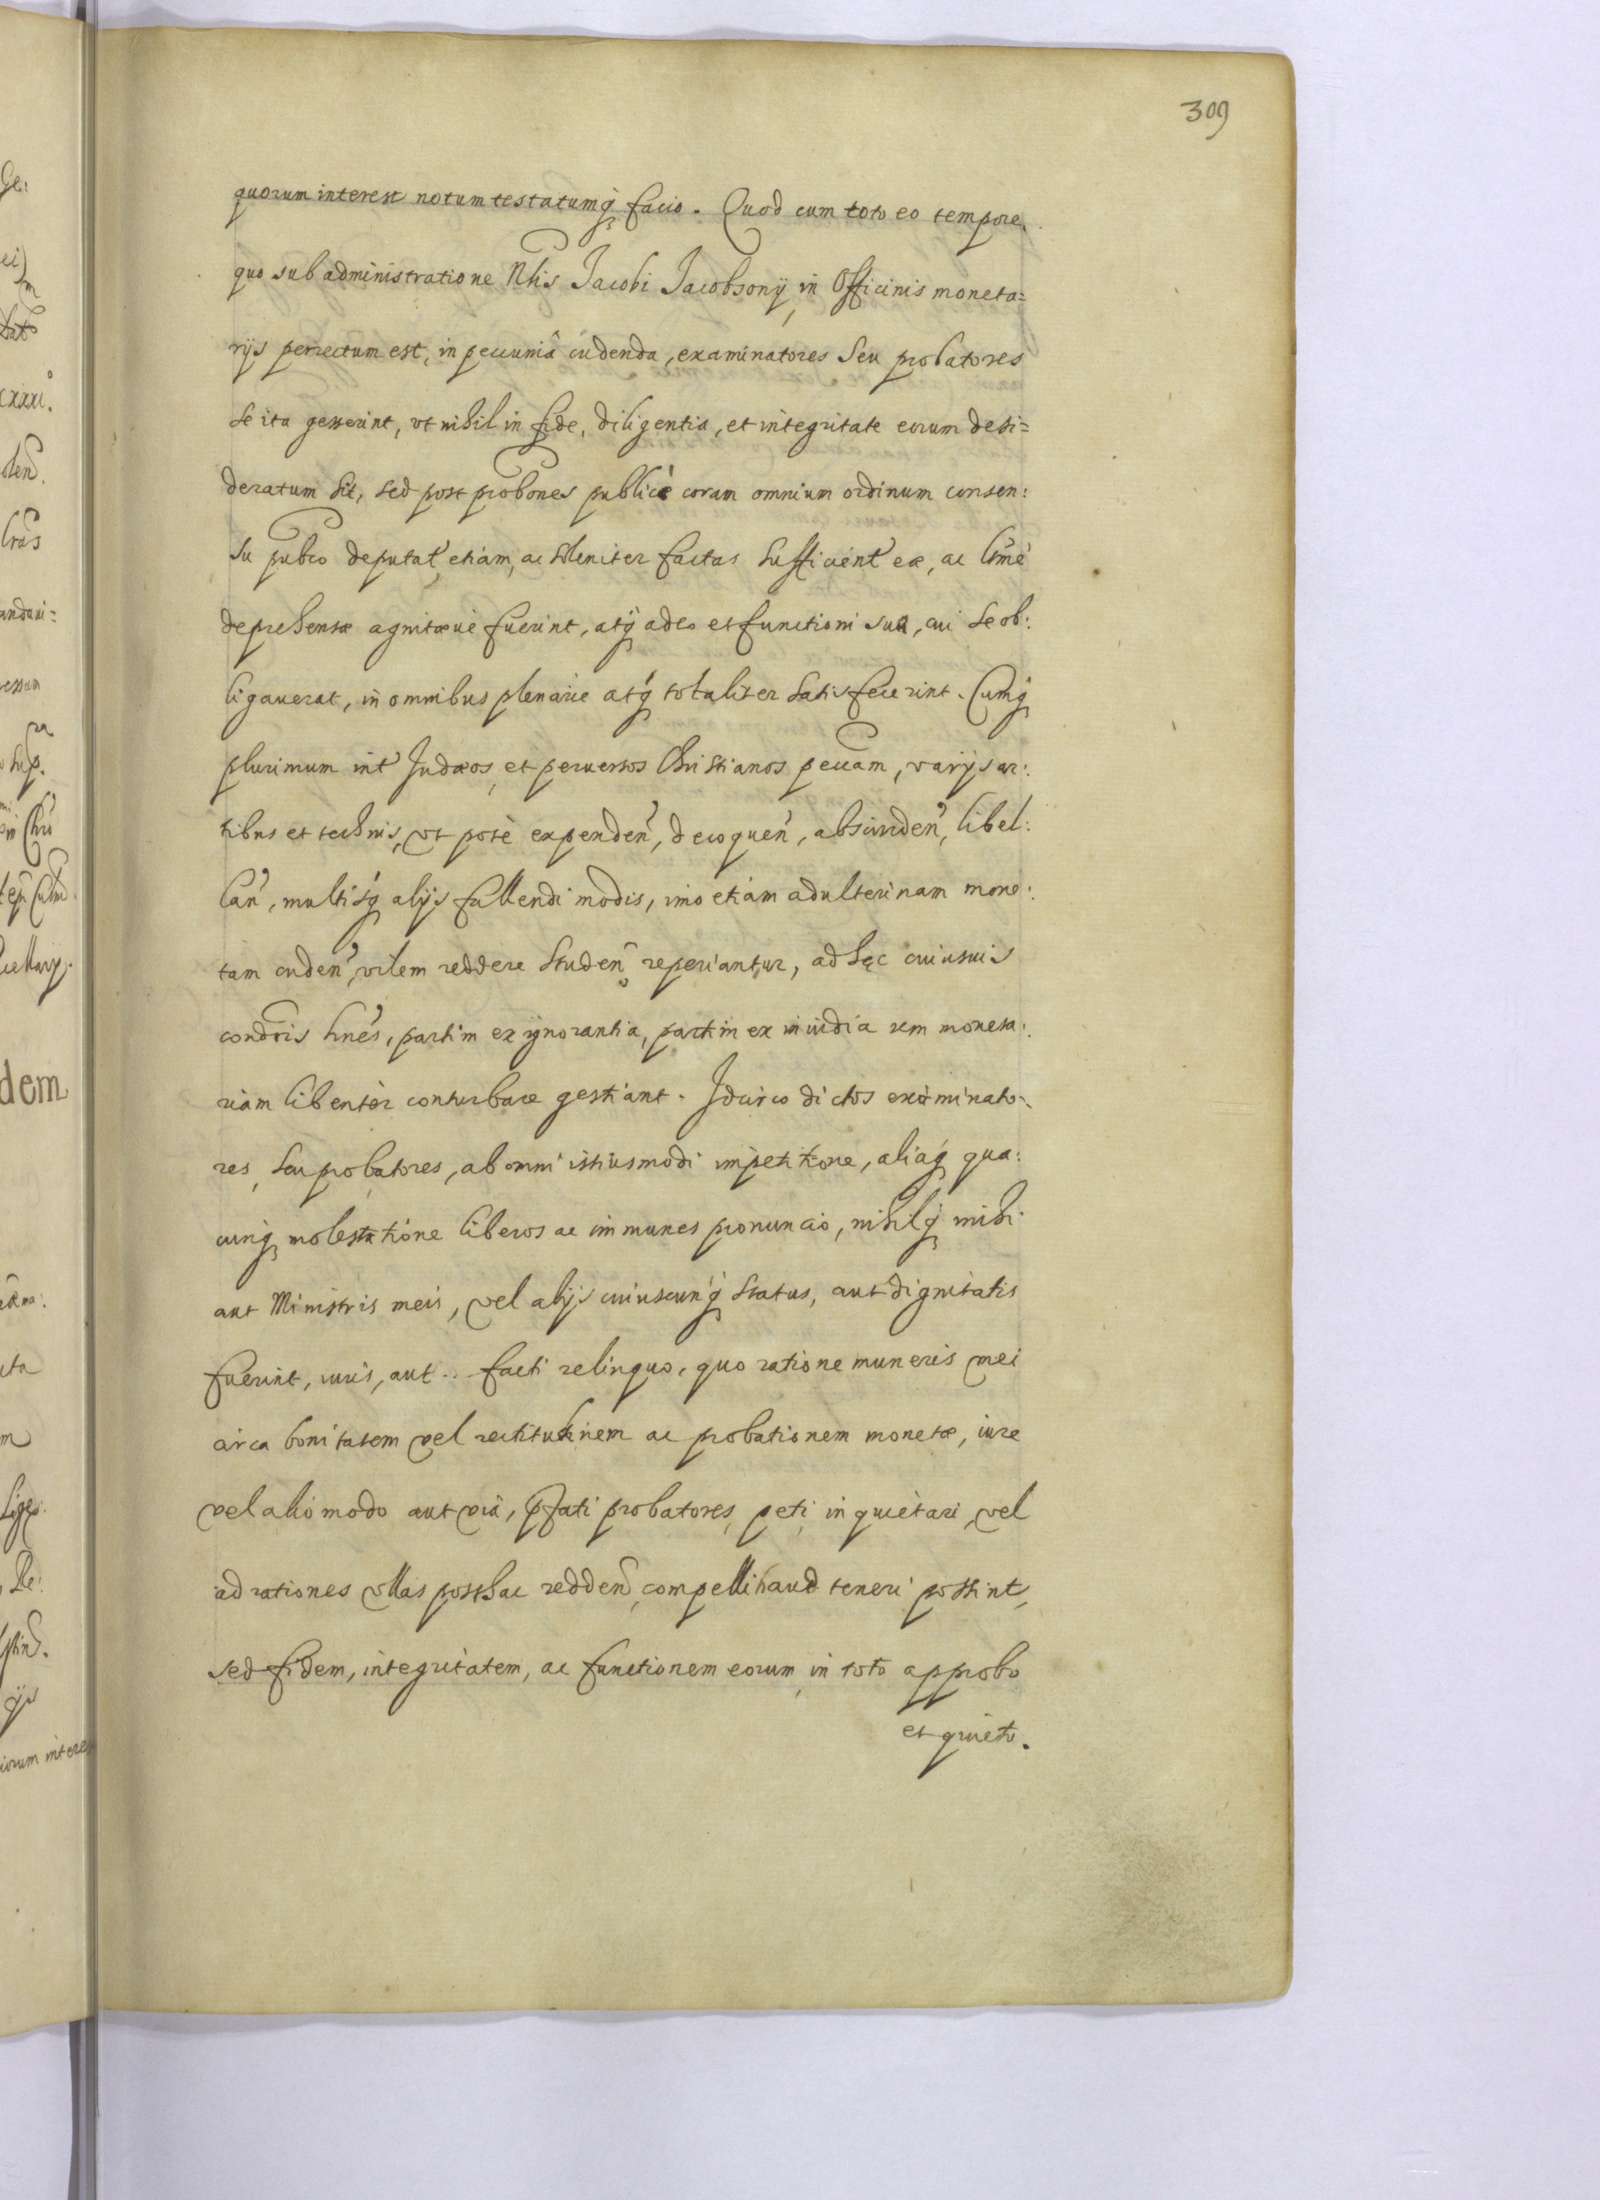 309
quorum interest notum testatumq́ facio. Quod cum toto eo tempore,
quo sub administratione Nlis Jacobi Jacobsonij in Officinis moneta=
rijs perrectum est, in pecunia cudenda, examinatores Seu probatores
Se ita gesserint, vt nihil in fide, diligentia, et integritate eorum desi=
deratum sit, sed post probones publice coram omnium ordinum consen:
su pubco deputat etiam, ac solleniter factas sufficient eæ, ac
deprehensæ agnitæue fuerint, atq́ adeo et functioni sua, cui se ob:
ligauerat, in omnibus plenarie atq́ totaliter satisfecerint. Cumq́
plurimum int Judæos, et peruersos Christianos pecuam, varijs ar:
tibus et technis, vt potè expenden, decoquen, abscinden, libel:
lan, multisq́ alijs fallendi modis, imo etiam adulterinam mone:
tam cuden, vilem reddere studen reperiantur, ad hęc cuiusuis
condois hnes, partim ex ignorantia, partim ex inuidia rem moneta:
riam libenter conturbare gestiant. Idcirco dictos examinato:
res, seu probatores, ab omni istiusmodi impetitione, aliaq́ qua:
cunq́ molestatione liberos ac immunes pronuncio, nihilq́ mihi
aut Ministris meis, vel alijs cuiuscunq́ status, aut dignitatis
fuerint, iuris, aut .. facti relinquo, quo ratione muneris mei
circa bonitatem vel rectitudinem ac probationem monetæ, iure
vel alio modo aut via, pfati probatores, peti, inquietari, vel
ad rationes vllas posthac redden, compelli haud teneri possint,
sed fidem, integritatem, ac functionem eorum, in toto approbo
et quieto.